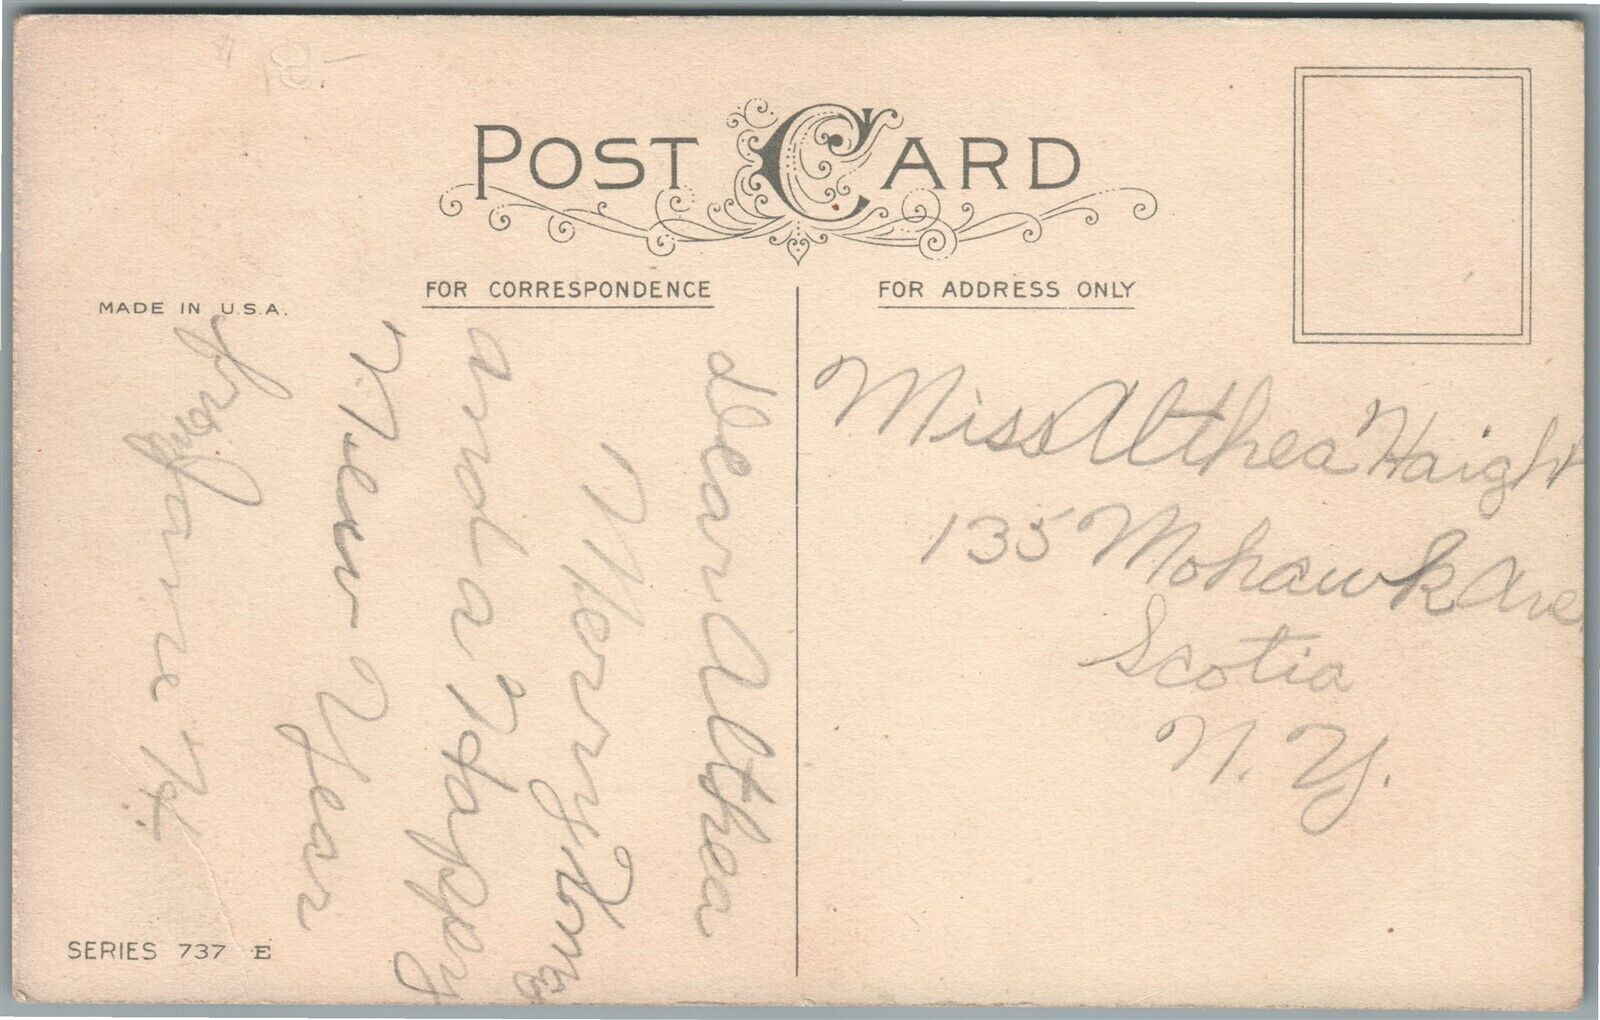 POST CARD
FOR CORRESPONDENCE
FOR ADDRESS ONLY
MADE IN U.S.A.
dear Althea
Merry Xmas
and a Happy
New Year
from
Jane H.
Miss Althea Haight
135 Mohawk Ave
Scotia
N. Y.
SERIES 737 E